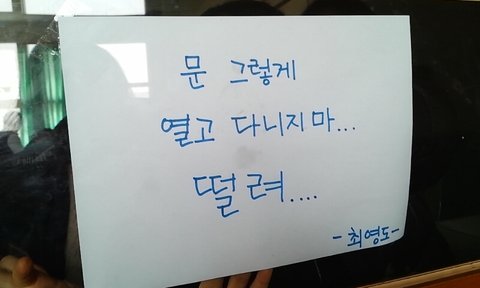 문 그렇게
열고 다니지마...
떨려....
-최영도-